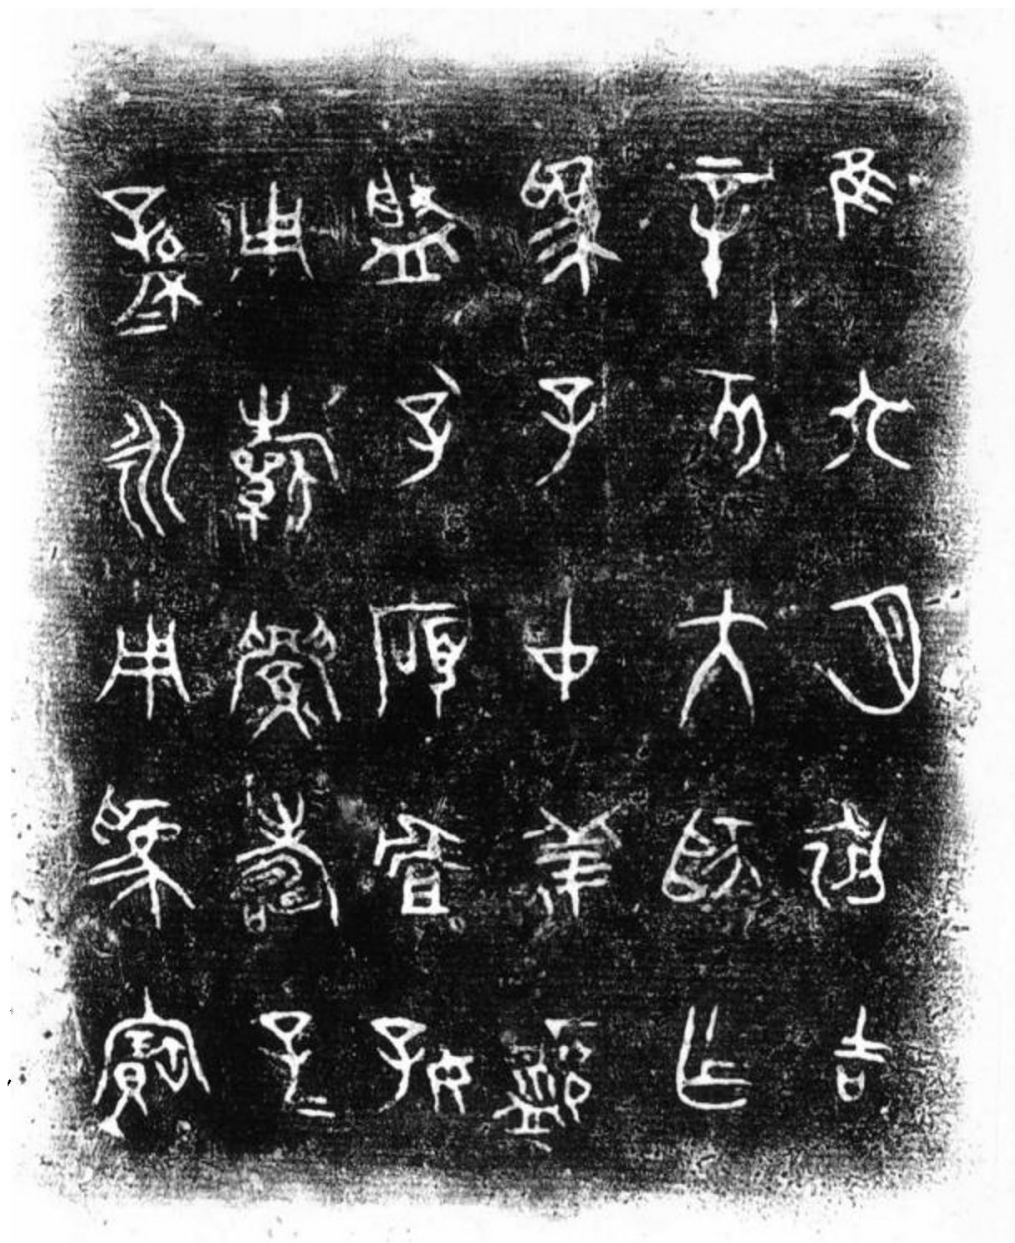 隹六月初吉
辛亥大師乍
爲子中姜沬
盤孔碩且好
用旂眉壽子=
孫=永用爲寶